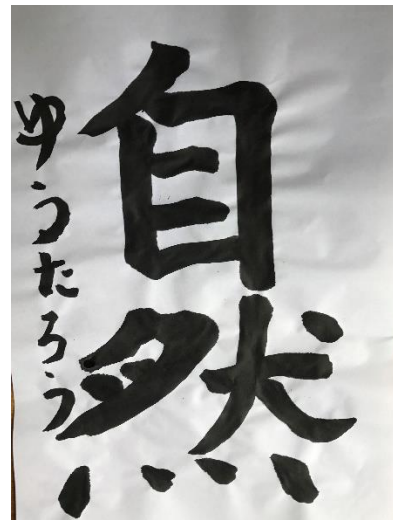 自然
ゆうたろう